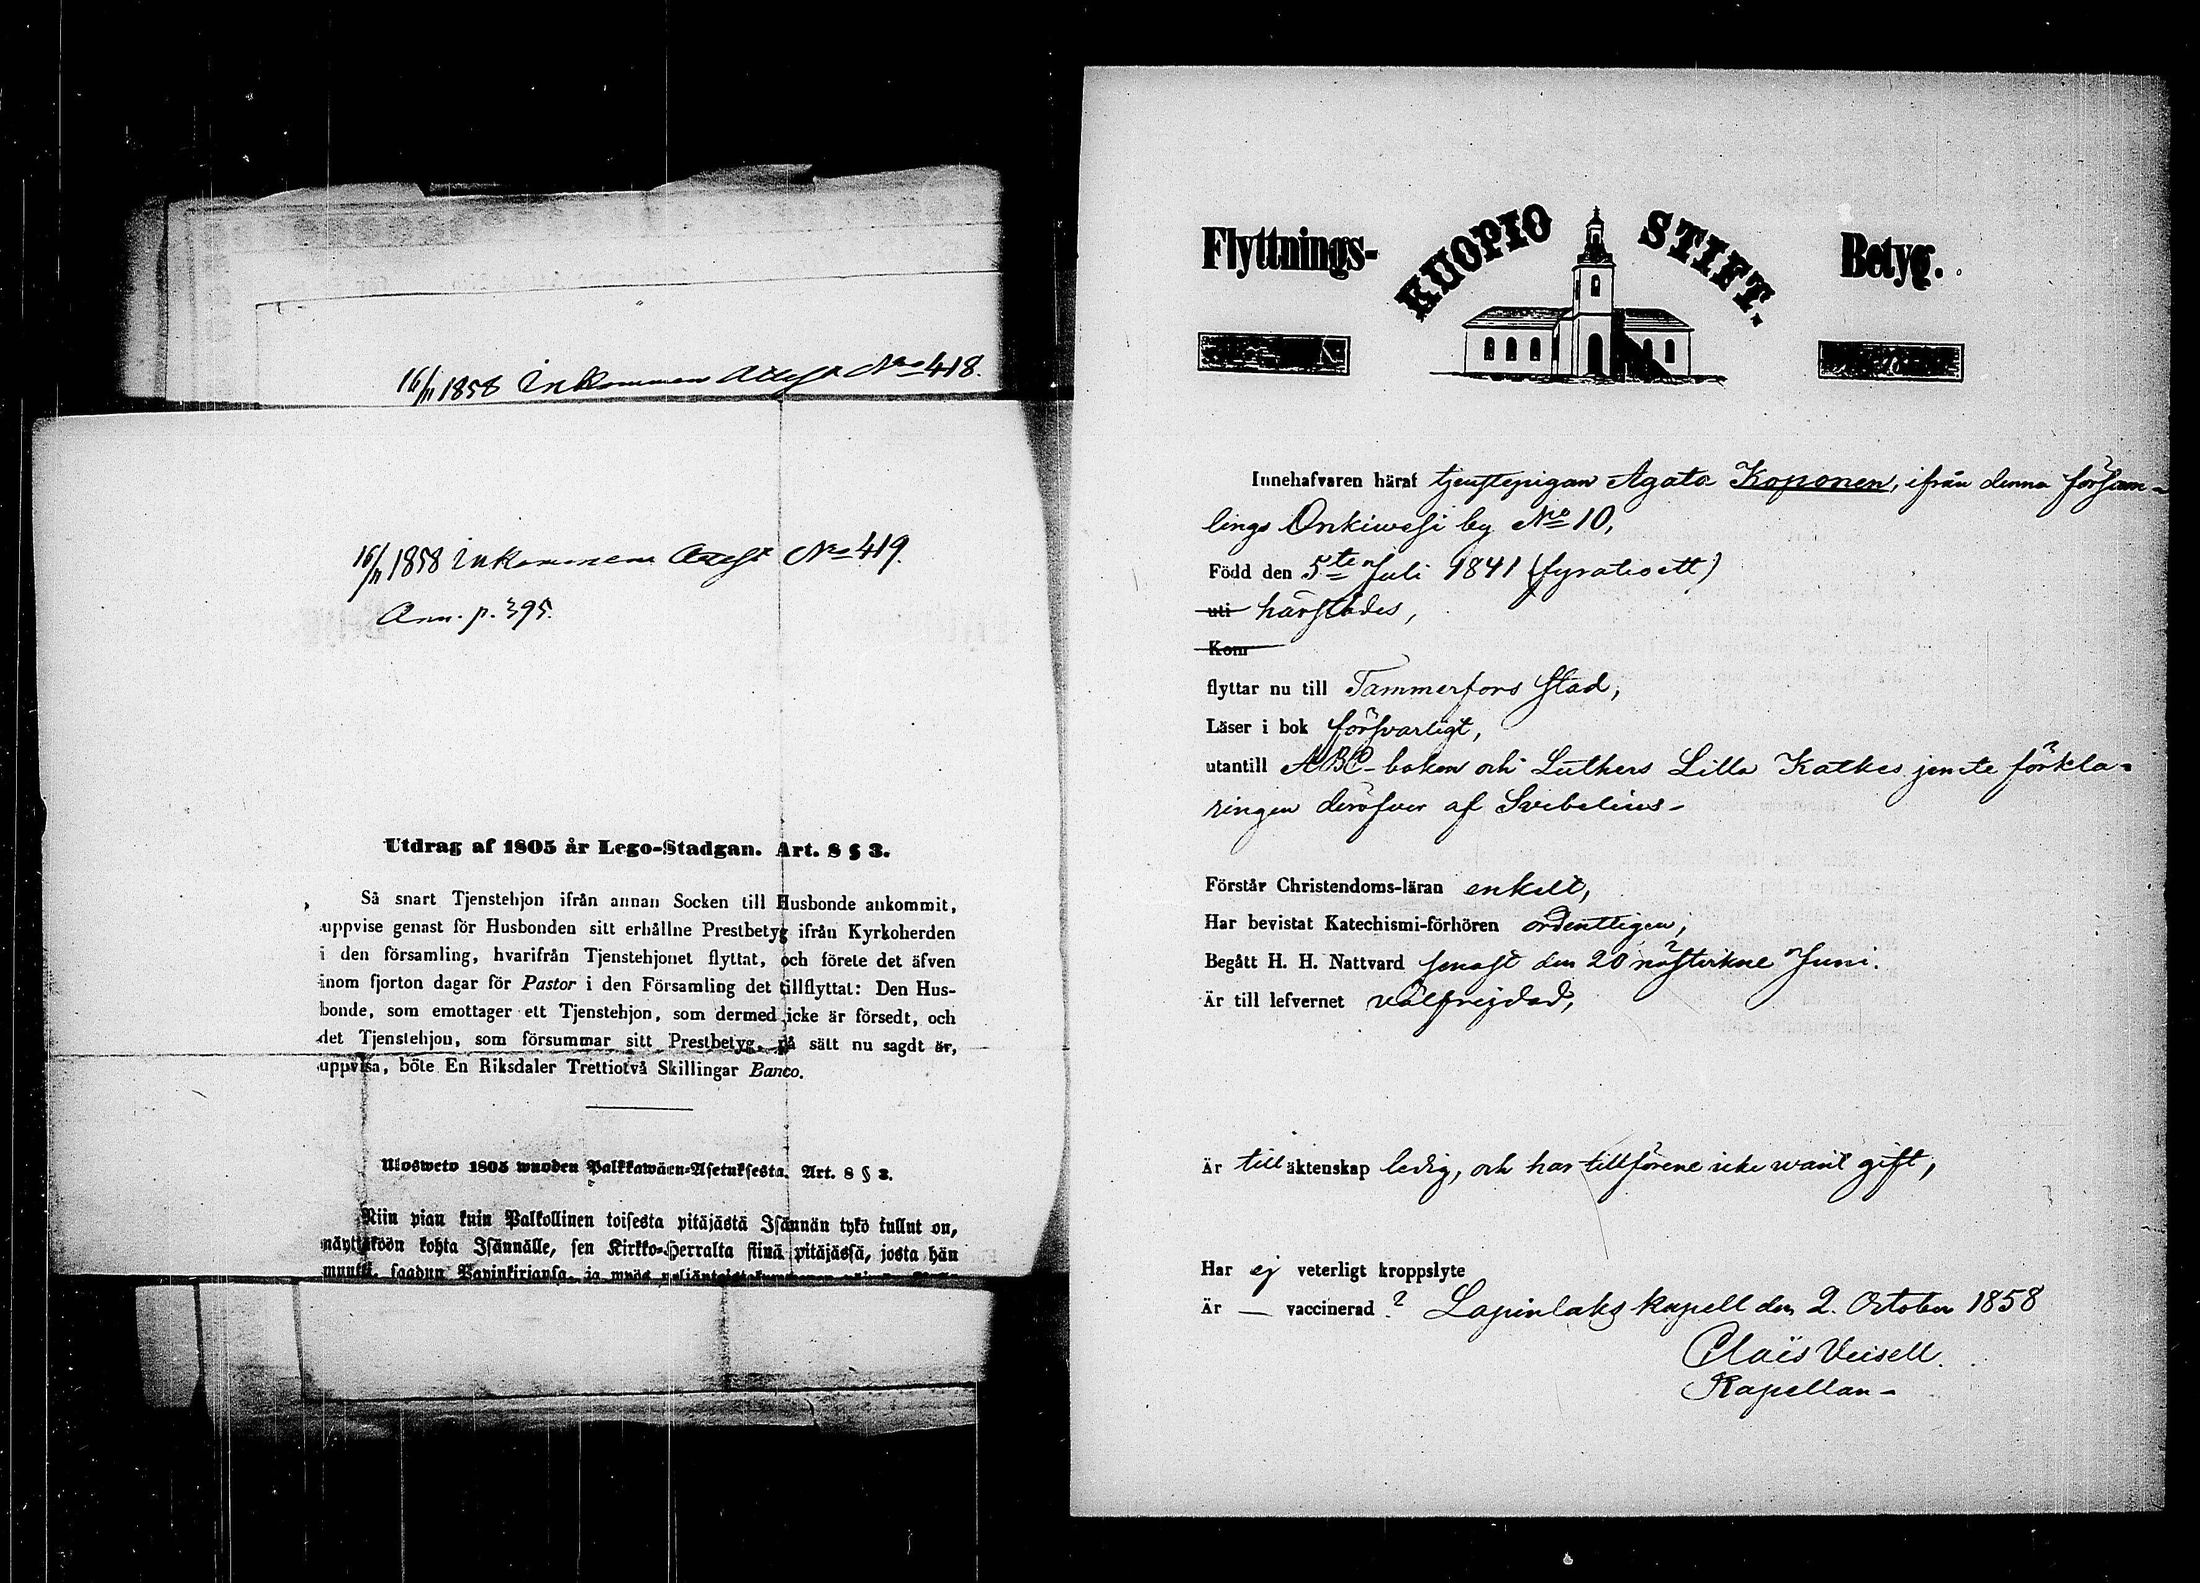 16/11 1858 Inkommen Attest No 418.
16/11 1858 Inkommen Attest No 419.
Ann. p. 395.
Utdrag af 1805 år Lego-Stadgan. Art. 8 § 3.
Så snart Tjenstehjon ifrån annan Socken till Husbonde ankommit,
uppvise genast för Husbonden sitt erhållne Prestbetyg ifrån Kyrkoherden
i den församling, hvarifrån Tjenstehjonet flyttat, och förete det äfven
inom fjorton dagar för Pastor i den Församling det tillflyttat: Den Hus-
bonde, som emottager ett Tjenstehjon, som dermed icke är försedt, och
det Tjenstehjon, som försummar sitt Prestbetyg, på sätt nu sagdt är,
uppvisa, böte En Riksdaler Trettiotvå Skillingar Banco.
Ulosweto 1805 wuoden Palkkawäen-Asetuksesta. Art. 8 § 3.
Niin pian kuin Palkollinen toisesta pitäjästä Isännän tykö tullut on,
näyttäköön kohta Isännälle, sen Kirkko-Herralta siinä pitäjässä, josta hän
muutti, saadun Papinkirjansa, ja myös
Flyttnings- KUOPIO STIFT. Betyg.
Innehafvaren häraf tjenstepigan Agata Koponen, ifrån denna försam-
lings Onkiwesi by No 10,
Född den 5te Juli 1841 (fyratioett)
uti härstädes,
Kom
flyttar nu till Tammerfors Stad,
Läser i bok försvarligt,
utantill ABC-boken och Luthers Lilla Katkes jemte förkla-
ringen deröfver af Svebelius-
Förstår Christendoms-läran enkelt,
Har bevistat Katechismi-förhören ordentligen,
Begått H. H. Nattvard senast den 20 nästvikne Juni.
Är till lefvernet välfrejdad,
Är till äktenskap ledig, och har tillförene icke warit gift,
Har ej veterligt kroppslyte
Är — vaccinerad? Lapinlaks kapell den 2. October 1858
Claës Veisell.
Kapellan-